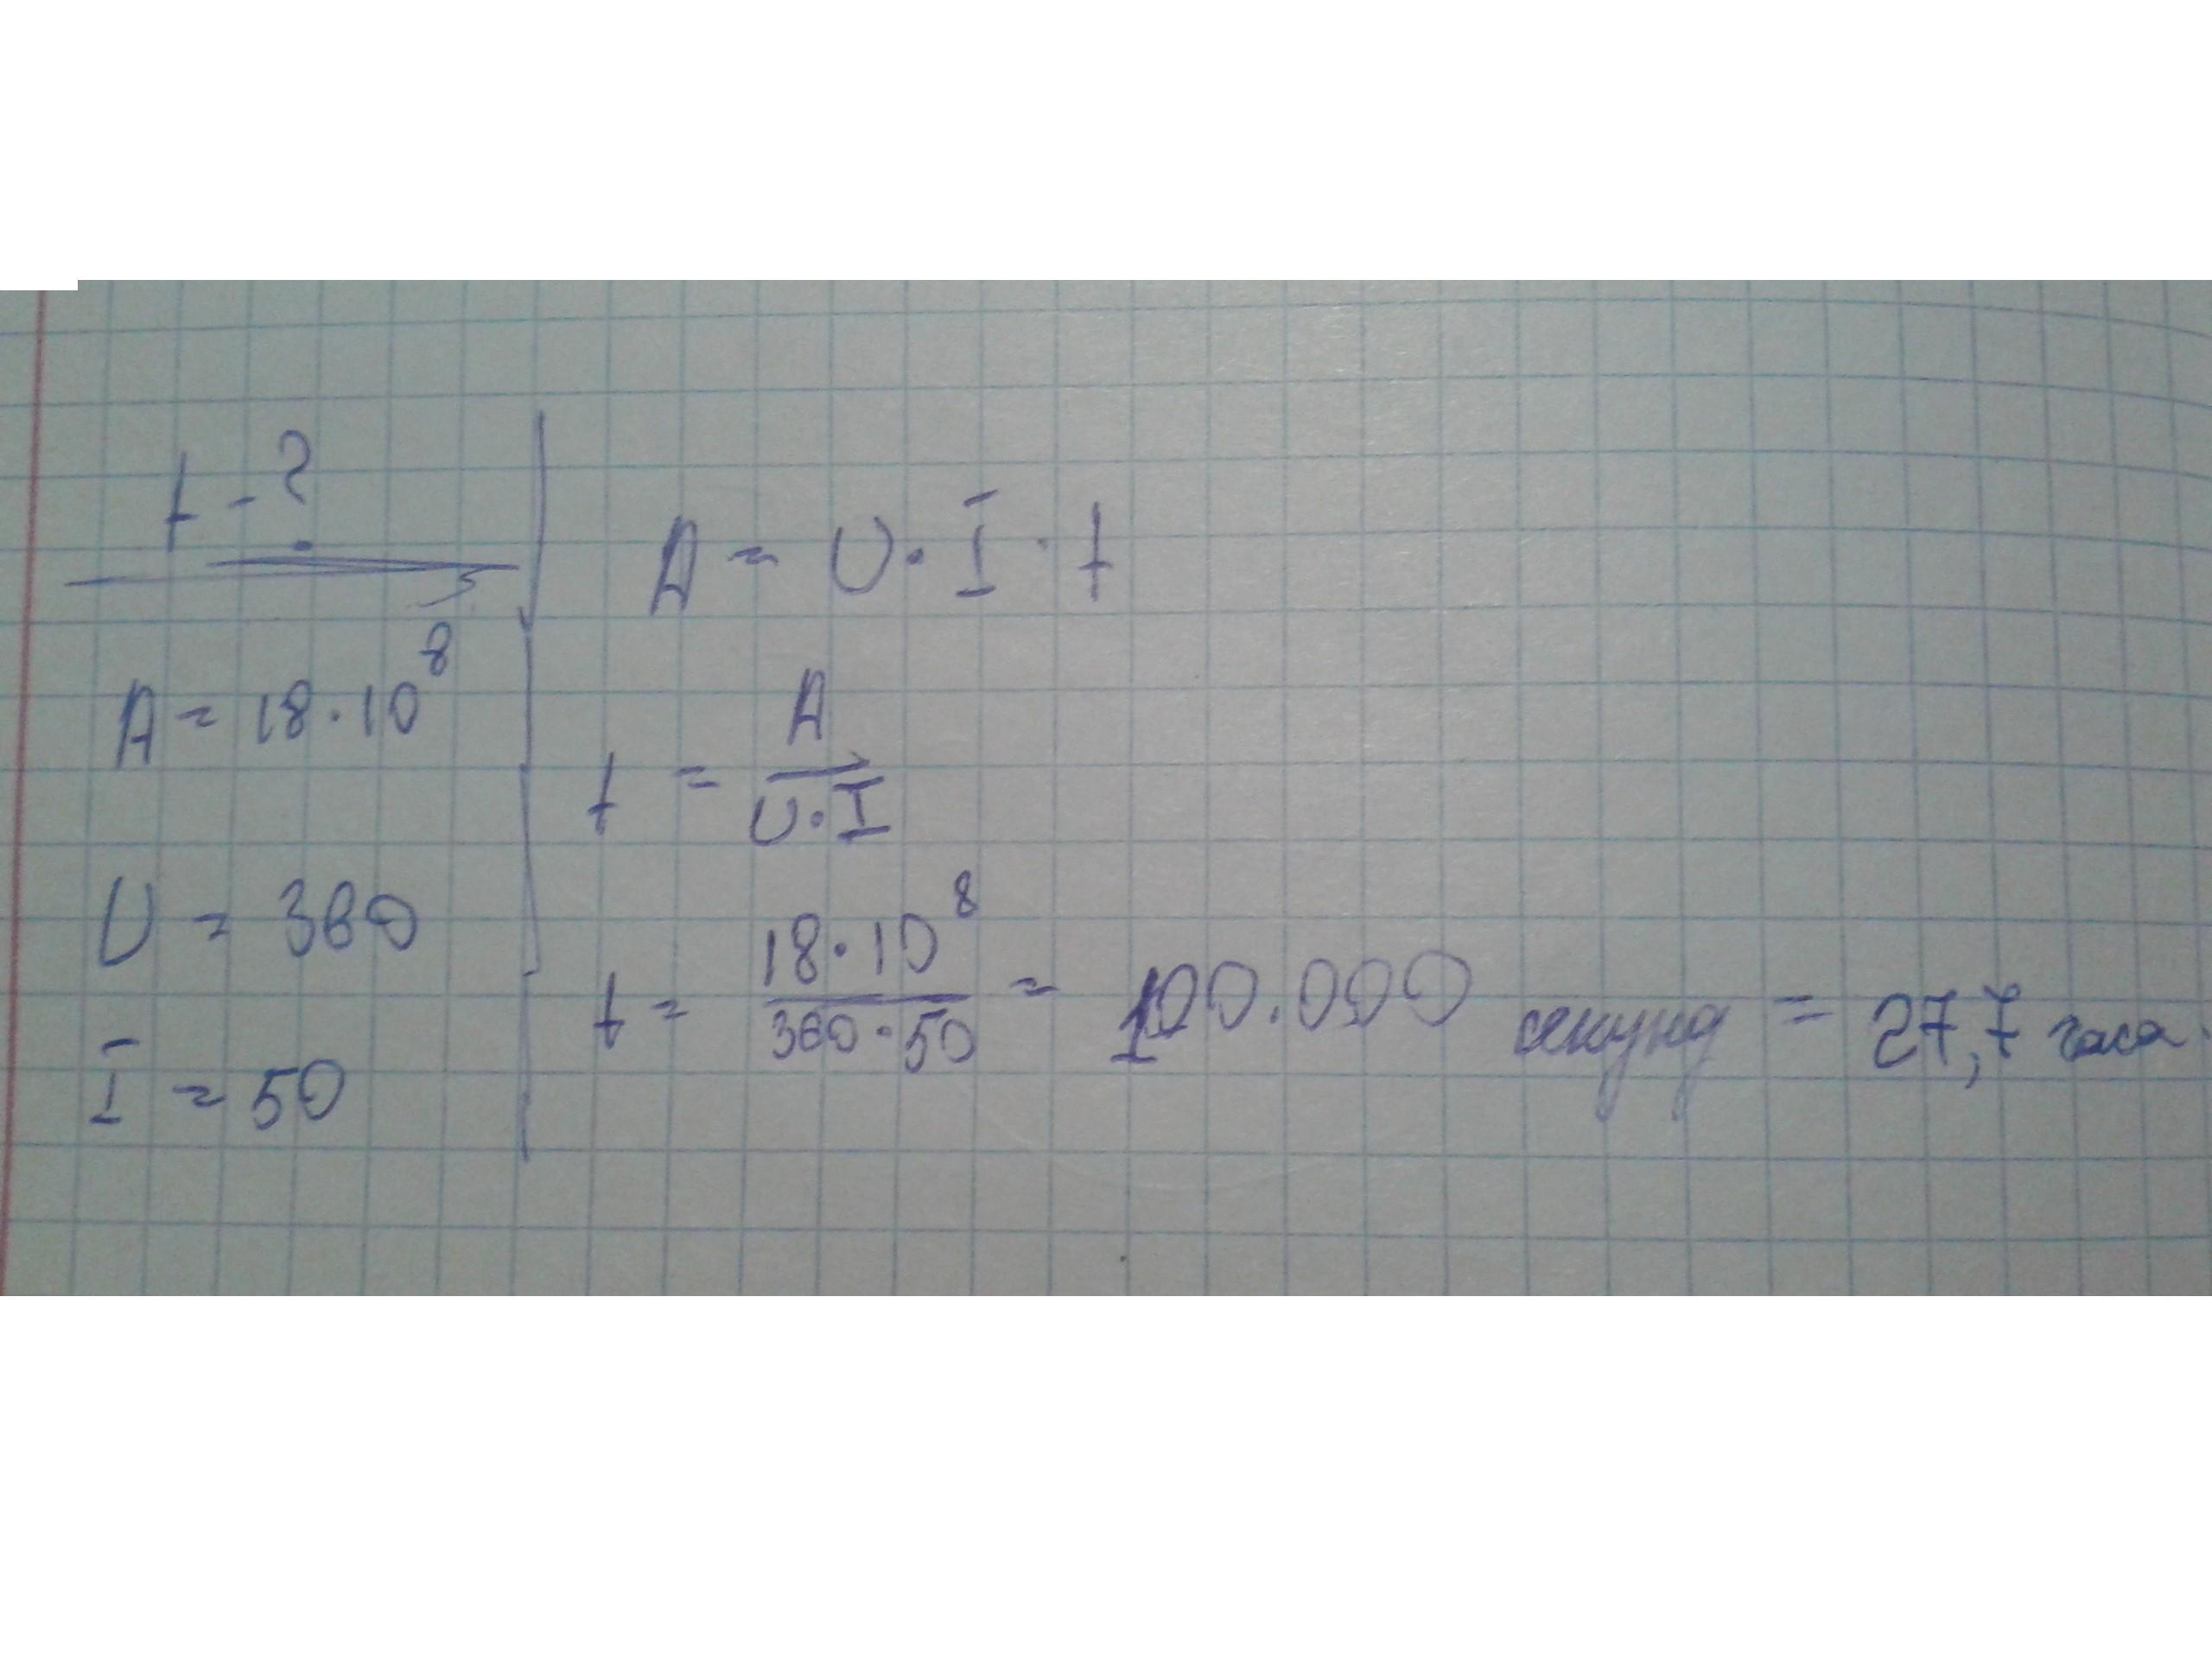 t - ?
A = 18 · 10⁸
U = 360
I = 50
A = U · I · t
t = A / U · I
t = 18 · 10⁸ / 360 · 50 = 100.000 секунд = 27,7 часа